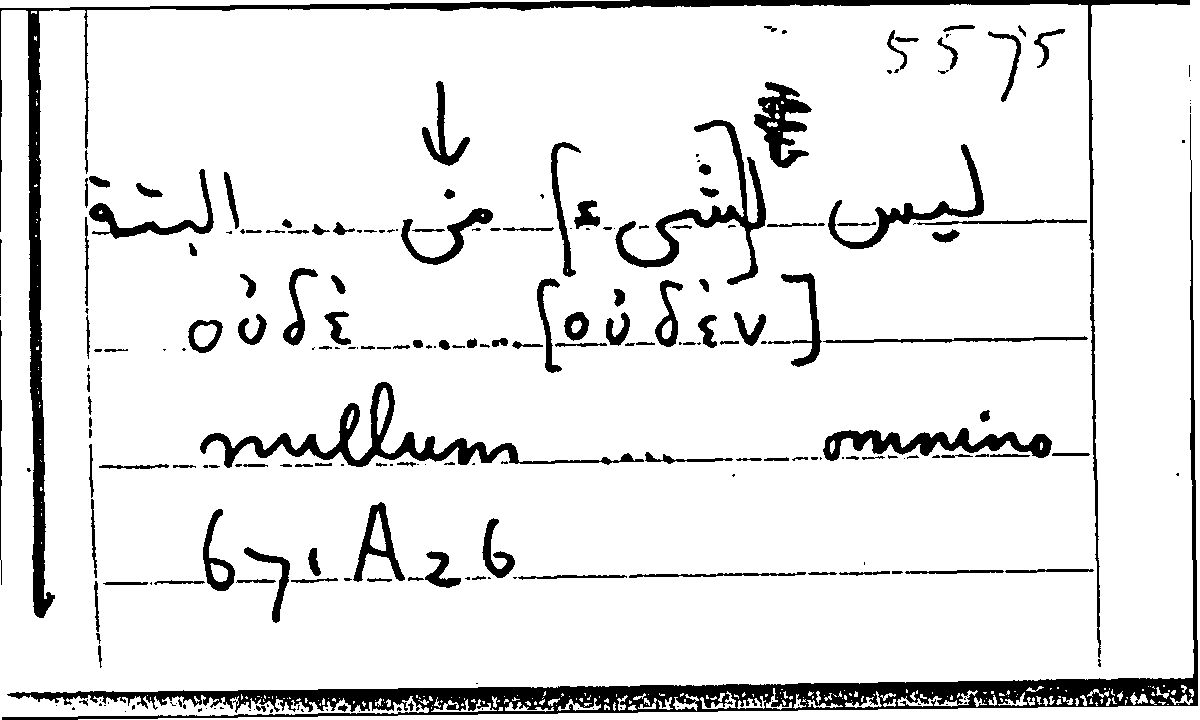 5575
ليس [لشىء] من ... البتة
οὐδὲ ...... [οὐδὲν]
nullum .... omnino
67, A 26